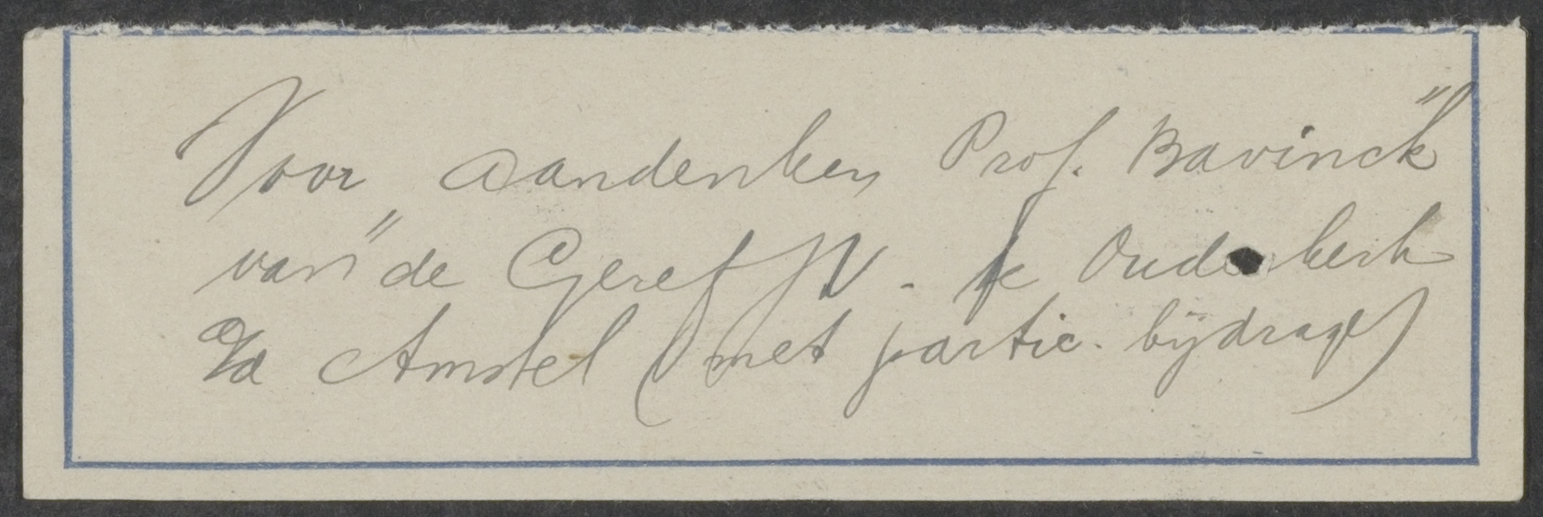 Voor aandenken Prof. Bavinck"
van" de Geref. K. te Ouderkerk
a/d Amstel (met partic. bijdrage)